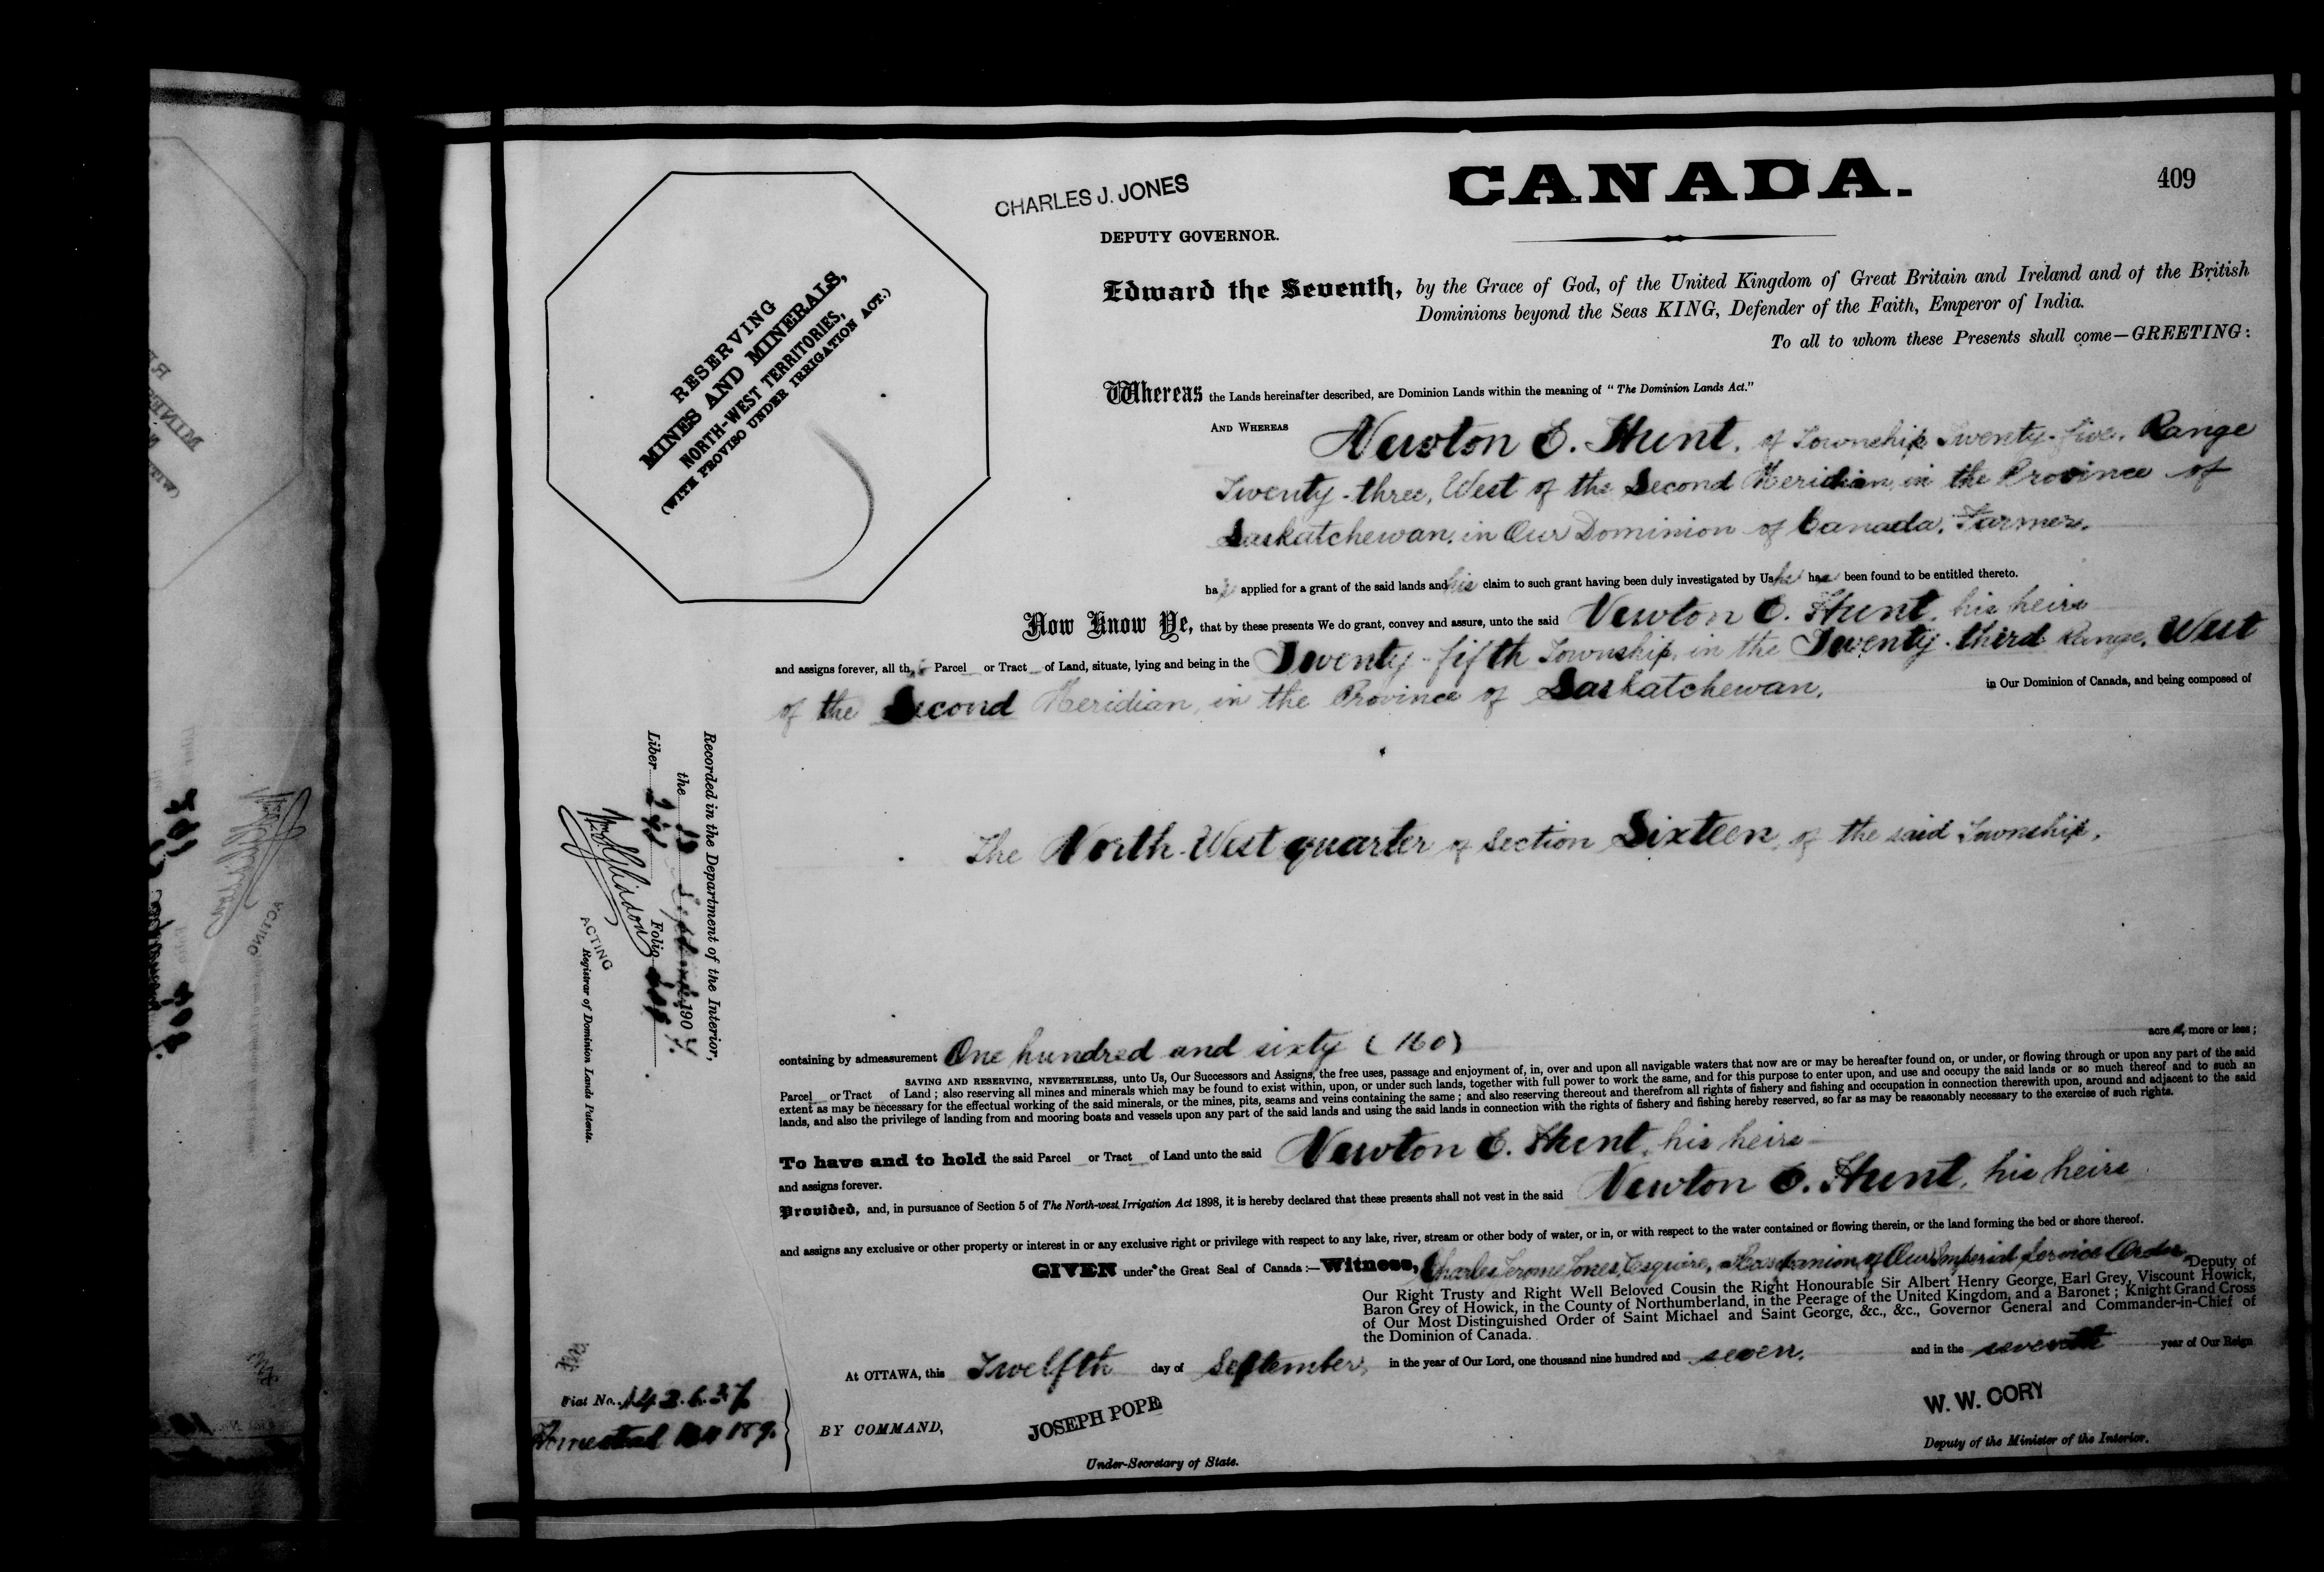 CANADA.
409
CHARLES J. JONES
DEPUTY GOVERNOR.
RESERVING
MINES AND MINERALS,
NORTH-WEST TERRITORIES,
(WITH PROVISO UNDER IRRIGATION ACT.)
Edward the Seventh, by the Grace of God, of the United Kingdom of Great Britain and Ireland and of the British
Dominions beyond the Seas KING, Defender of the Faith, Emperor of India.
To all to whom these Presents shall come—GREETING:
Whereas the Lands hereinafter described, are Dominion Lands within the meaning of "The Dominion Lands Act."
AND WHEREAS Newton E. Hunt, of Township Twenty-five, Range
Twenty-three, West of the Second Meridian, in the Province of
Saskatchewan, in Our Dominion of Canada, Farmer,
has applied for a grant of the said lands and his claim to such grant having been duly investigated by Us he has been found to be entitled thereto.
Now Know Ye, that by these presents We do grant, convey and assure, unto the said Newton E. Hunt, his heirs
and assigns forever, all that Parcel or Tract of Land, situate, lying and being in the Twenty-fifth Township, in the Twenty-third Range, West
of the Second Meridian, in the Province of Saskatchewan, in Our Dominion of Canada, and being composed of
The North West quarter of Section Sixteen, of the said Township,
Recorded in the Department of the Interior,
the 19 September 1907.
Liber Folio
ACTING
Registrar of Dominion Lands Patents.
containing by admeasurement One hundred and sixty (160) acres, more or less;
SAVING AND RESERVING, NEVERTHELESS, unto Us, Our Successors and Assigns, the free uses, passage and enjoyment of, in, over and upon all navigable waters that now are or may be hereafter found on, or under, or flowing through or upon any part of the said
Parcel or Tract of Land; also reserving all mines and minerals which may be found to exist within, upon, or under such lands, together with full power to work the same, and for this purpose to enter upon, and use and occupy the said lands or so much thereof and to such an
extent as may be necessary for the effectual working of the said minerals, or the mines, pits, seams and veins containing the same; and also reserving thereout and therefrom all rights of fishery and fishing and occupation in connection therewith upon, around and adjacent to the said
lands, and also the privilege of landing from and mooring boats and vessels upon any part of the said lands and using the said lands in connection with the rights of fishery and fishing hereby reserved, so far as may be reasonably necessary to the exercise of such rights.
To have and to hold the said Parcel or Tract of Land unto the said Newton E. Hunt, his heirs
and assigns forever.
Provided, and, in pursuance of Section 5 of The North-west Irrigation Act 1898, it is hereby declared that these presents shall not vest in the said Newton E. Hunt, his heirs
and assigns any exclusive or other property or interest in or any exclusive right or privilege with respect to any lake, river, stream or other body of water, or in, or with respect to the water contained or flowing therein, or the land forming the bed or shore thereof.
GIVEN under the Great Seal of Canada:—Witness, Charles Jerome Jones, Esquire, a Companion of Our Imperial Service Order, Deputy of
Our Right Trusty and Right Well Beloved Cousin the Right Honourable Sir Albert Henry George, Earl Grey, Viscount Howick,
Baron Grey of Howick, in the County of Northumberland, in the Peerage of the United Kingdom, and a Baronet; Knight Grand Cross
of Our Most Distinguished Order of Saint Michael and Saint George, &c., &c., Governor General and Commander-in-Chief of
the Dominion of Canada.
At OTTAWA, this Twelfth day of September, in the year of Our Lord, one thousand nine hundred and seven, and in the seventh year of Our Reign
Fiat No. 142637
Homestead
BY COMMAND,
JOSEPH POPE
Under-Secretary of State.
W. W. CORY
Deputy of the Minister of the Interior.